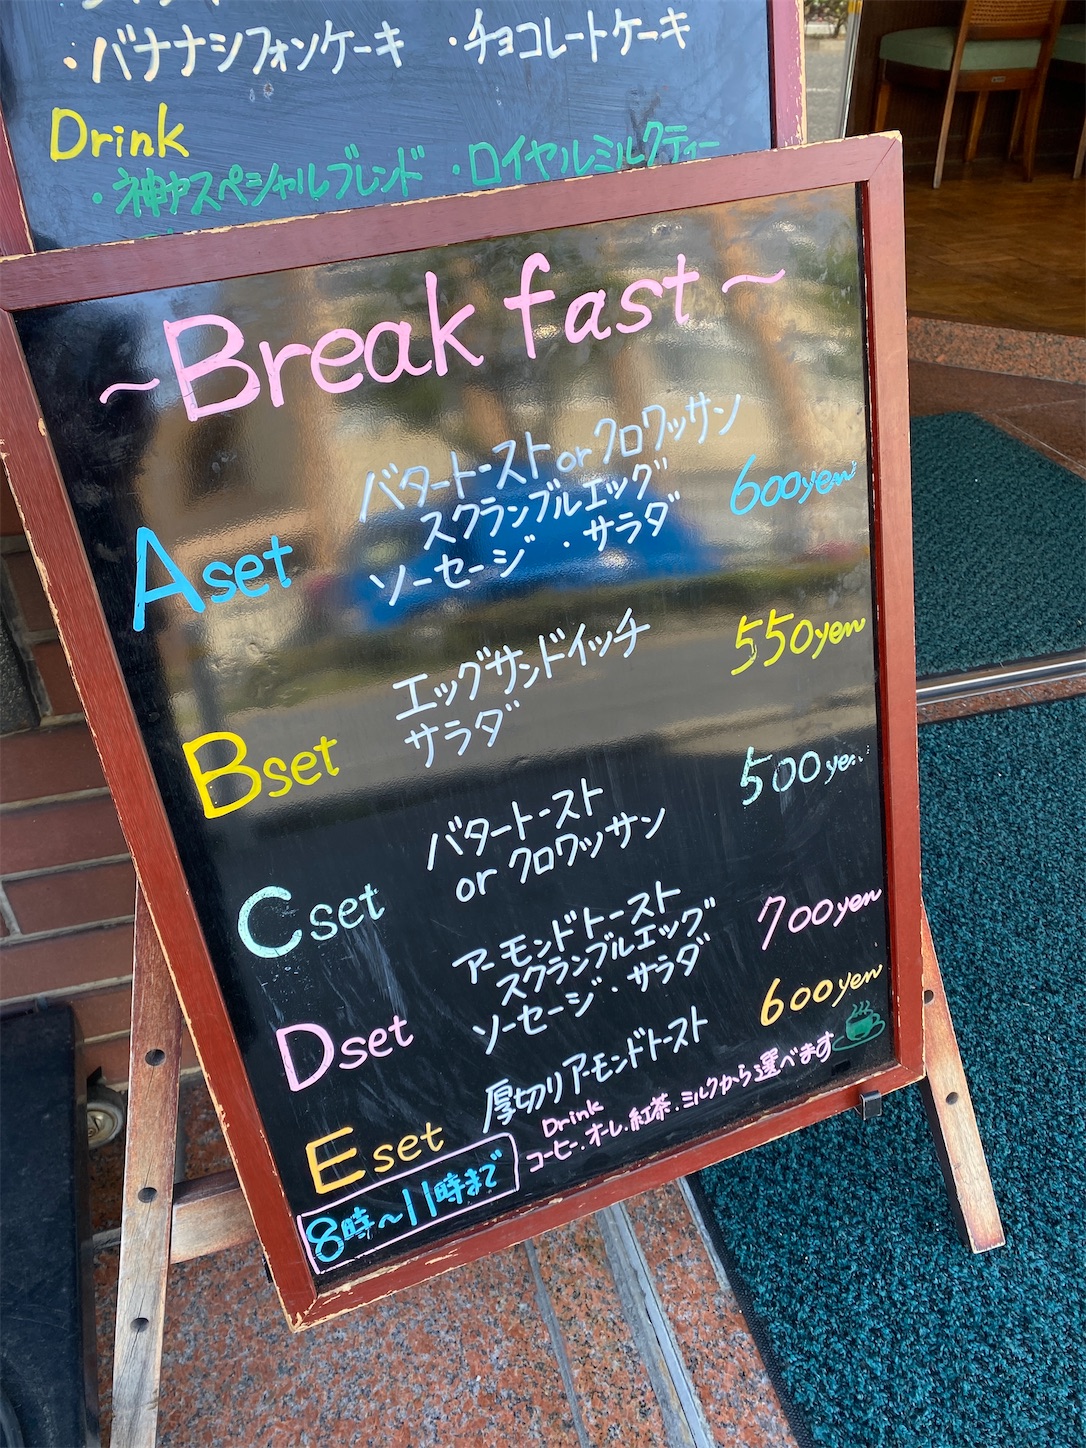 ・バナナシフォンケーキ ・チョコレートケーキ
Drink
・神戸スペシャルブレンド ・ロイヤルミルクティー
~Breakfast~
バタートースト or クロワッサン
スクランブルエッグ
ソーセージ・サラダ
A set 600yen
エッグサンドイッチ
サラダ
B set 550yen
バタートースト
or クロワッサン
C set 500yen
アーモンドトースト
スクランブルエッグ
ソーセージ・サラダ
D set 700yen
厚切りアーモンドトースト
E set 600yen
Drink
コーヒー・オーレ・紅茶・ミルクから選べます
8時~11時まで